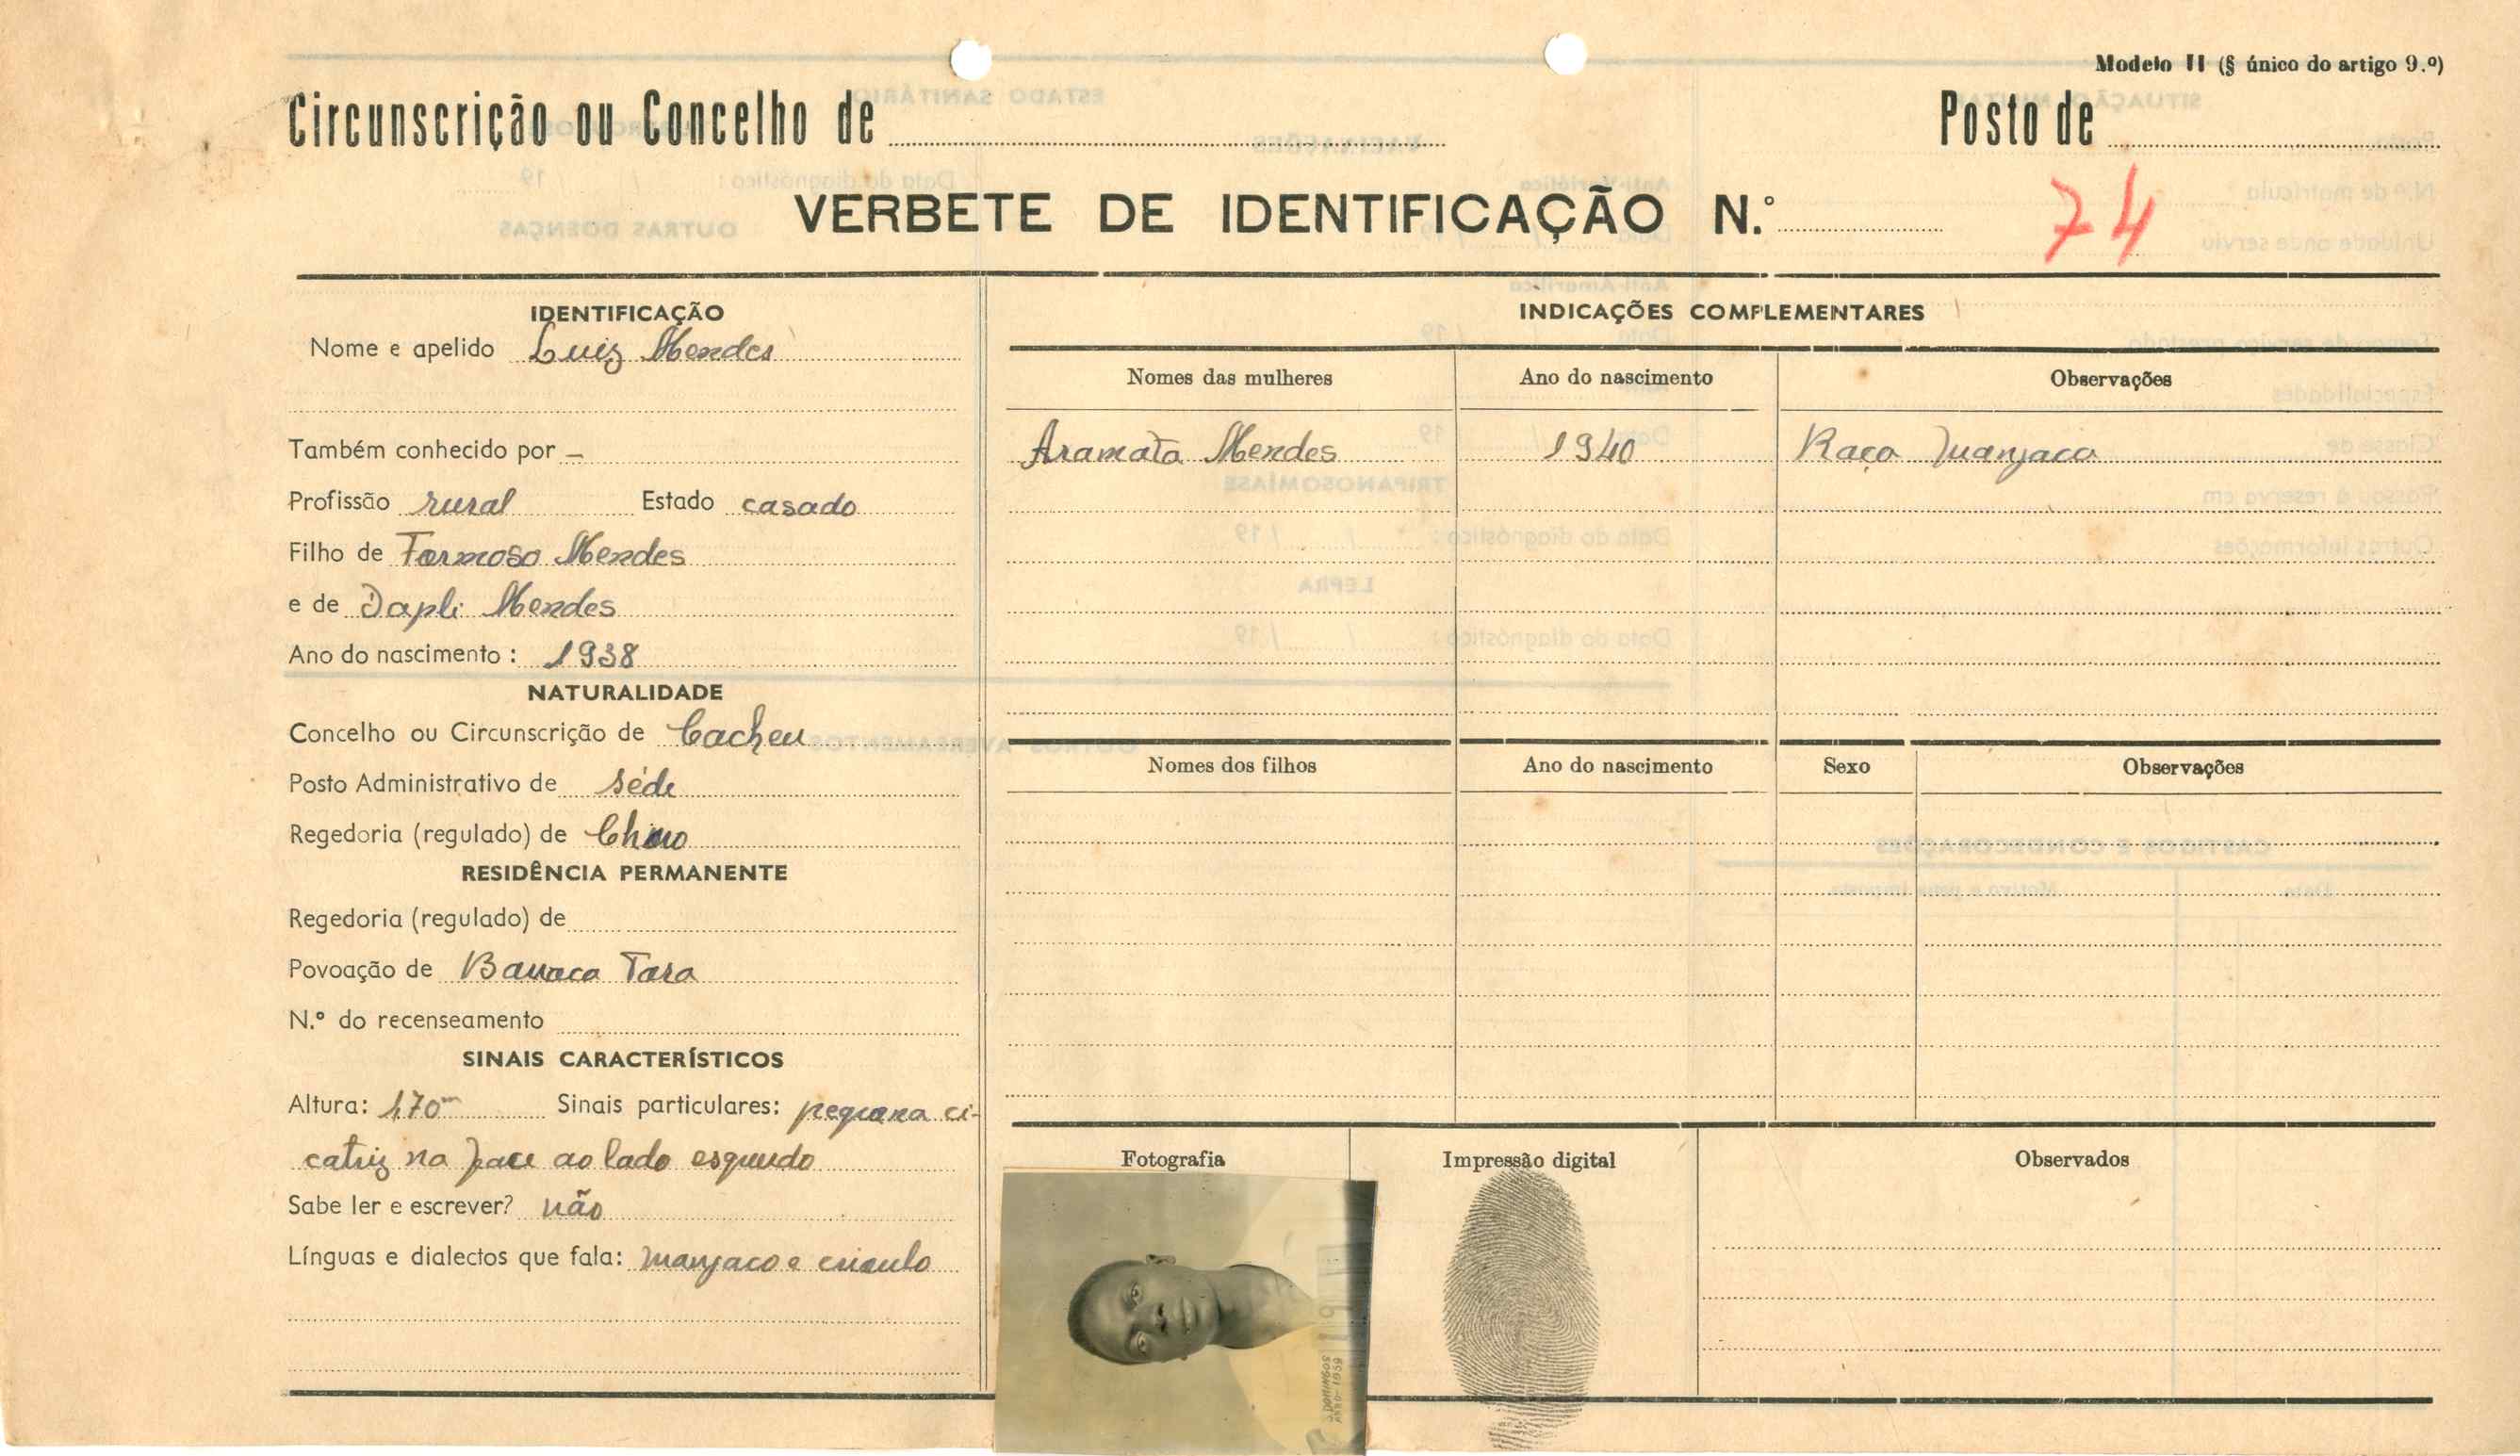 Modelo II (§ único do artigo 9.º)
Circunscrição ou Concelho de
Posto de
VERBETE DE IDENTIFICAÇÃO N.º 74
IDENTIFICAÇÃO
Nome e apelido Luiz Mendes
Também conhecido por —
Profissão rural Estado casado
Filho de Formoso Mendes
e de Dapli Mendes
Ano do nascimento : 1938
NATURALIDADE
Concelho ou Circunscrição de Cacheu
Posto Administrativo de séde
Regedoria (regulado) de
RESIDÊNCIA PERMANENTE
Regedoria (regulado) de
Povoação de Tara
N.º do recenseamento
SINAIS CARACTERÍSTICOS
Altura: 1,70m Sinais particulares: pequena ci-
catriz na face ao lado esquerdo
Sabe ler e escrever? não
Línguas e dialectos que fala: manjaco e crioulo
INDICAÇÕES COMPLEMENTARES
Nomes das mulheres Ano do nascimento Observações
Aramata Mendes 1940 Raça Manjaca
Nomes dos filhos Ano do nascimento Sexo Observações
Fotografia Impressão digital Observados